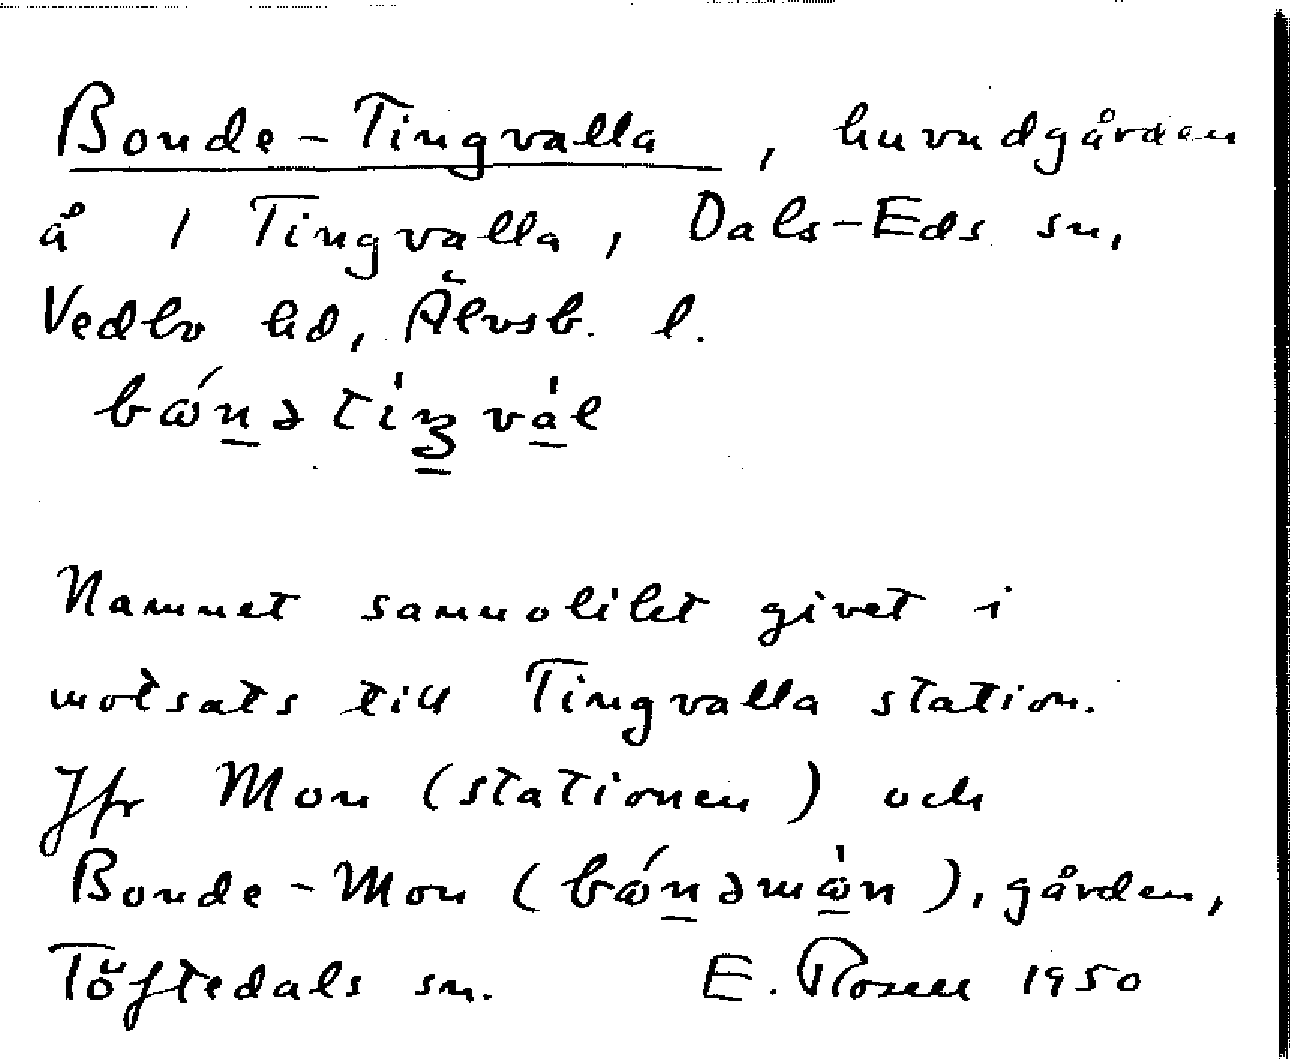 Bonde-Tingvalla, huvudgården
å 1 Tingvalla, Dals-Eds sn,
Vedbo hd, Älvsb. l.
Namnet sannolikt givet i
motsats till Tingvalla station.
Jfr Mon (stationen) och
Bonde-Mon (), gården,
Töftedals sn. E. Rosell 1950